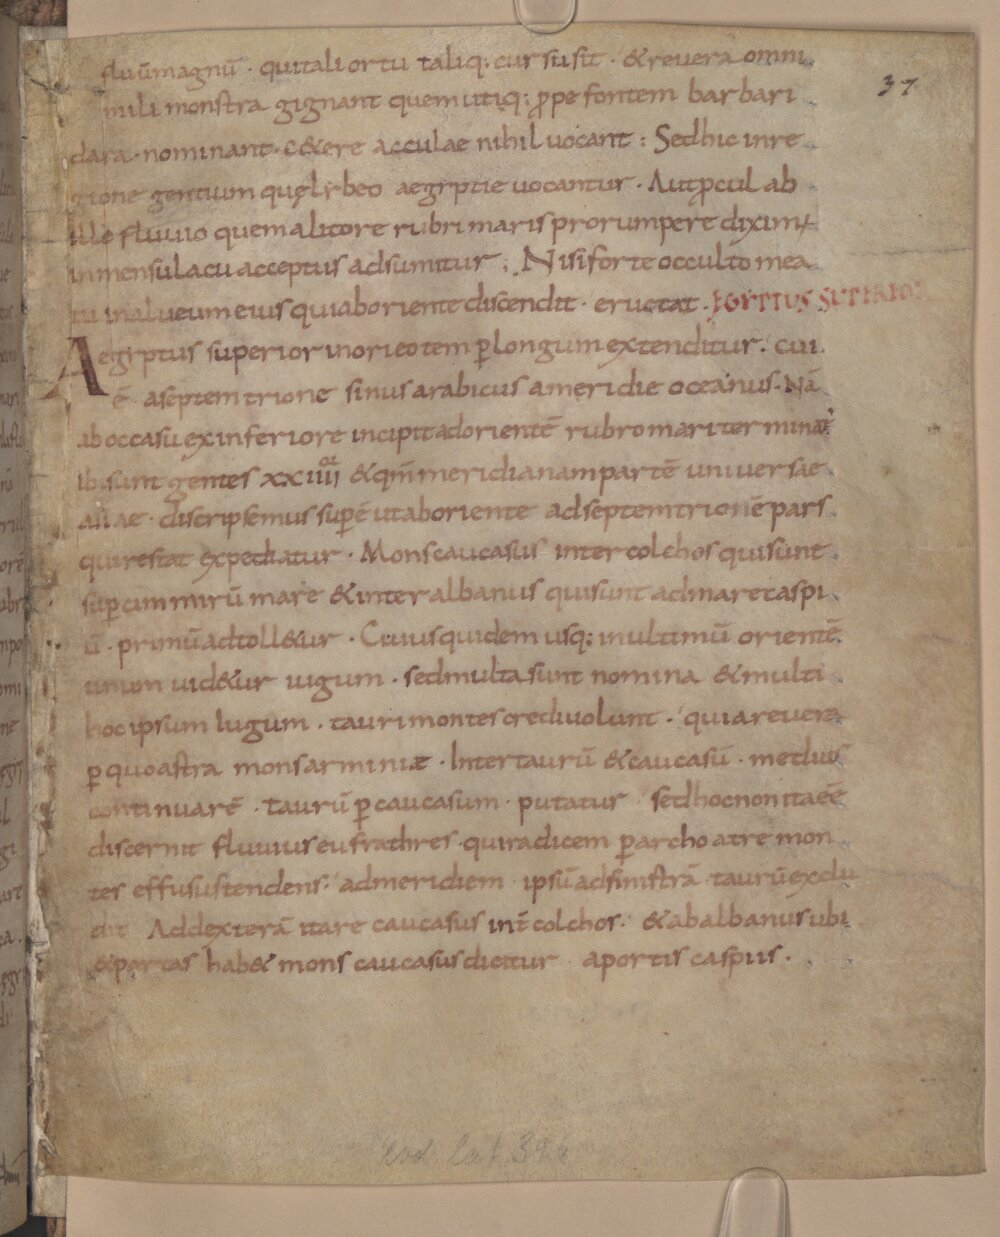 fluū magnū · qui tali ortu taliq; cursu sit · & revera omni
mili monstra gignant quem utiq; ꝓpe fontem barbari
dara · nominant · c&ere accolae nihil uocant : Sed hic in re
gione gentium quę lybeo aegyptie uocantur · Aut ꝓcul ab
illo fluuio quem a litore rubri maris prorumpere diximꝰ
inmensu lacu acceptus adsumitur ; Nisi forte occulto mea
tu in alueum eius qui ab oriente discendit · eructat · EGYPTUS SUPERIOR
Aegyptus superior in orieotem ꝑ longum extenditur · cui
ē · a septemtrione sinus arabicus a meridie oceanus · Nā
ab occasu ex inferiore incipit ad orientē rubro mari terminat᾽
Ibi sunt gentes xxiiii or & qm̄ meridianam partē universae
asiae · discripsemus supē ut ab oriente ad septemtrionē pars
qui restat expediatur · Mons caucasus inter colchos qui sunt
suꝑ cimmirū mare & inter albanus qui sunt ad mare caspi
ū · primū adtoll&ur · Cuius quidem usq; in ultimū orientē
unum uid&ur iugum · sed multa sunt nomina & multi
hoc ipsum Iugum · tauri montes credi uolunt · quia revera
ꝑquoastra mons arminiæ · Inter taurū & caucasū · medius
continuarē · taurū ꝑ caucasum · putatur · sed hoc non ita eē
discernit fluuius eufrathres · qui radicem ꝑarchoatre mon
tes effusus tendens · ad meridiem · ipsū ad sinistrā · taurū exclu
dit Ad dexterā itare caucasus int̄ colchos · & ab albanus ubi
& portas hab& mons caucasus dicitur · a portis caspiis ·
37
cod. lat. 396